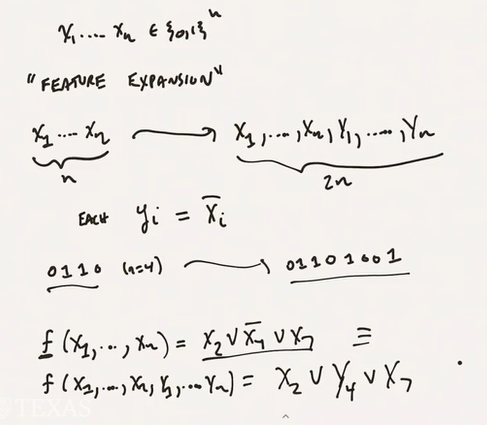 x₁ .... xₙ ∈ {0,1}ⁿ
"FEATURE EXPANSION"
x₁ .... xₙ ⟶ x₁,...,xₙ,y₁,....,yₙ
n 2n
EACH yᵢ = x̄ᵢ
0110 (n=4) ⟶ 01101001
f(x₁,...,xₙ) = x₂ ∨ x̄₄ ∨ x₇ ≡
f(x₁,...,xₙ,y₁,...yₙ) = x₂ ∨ y₄ ∨ x₇
TEXAS